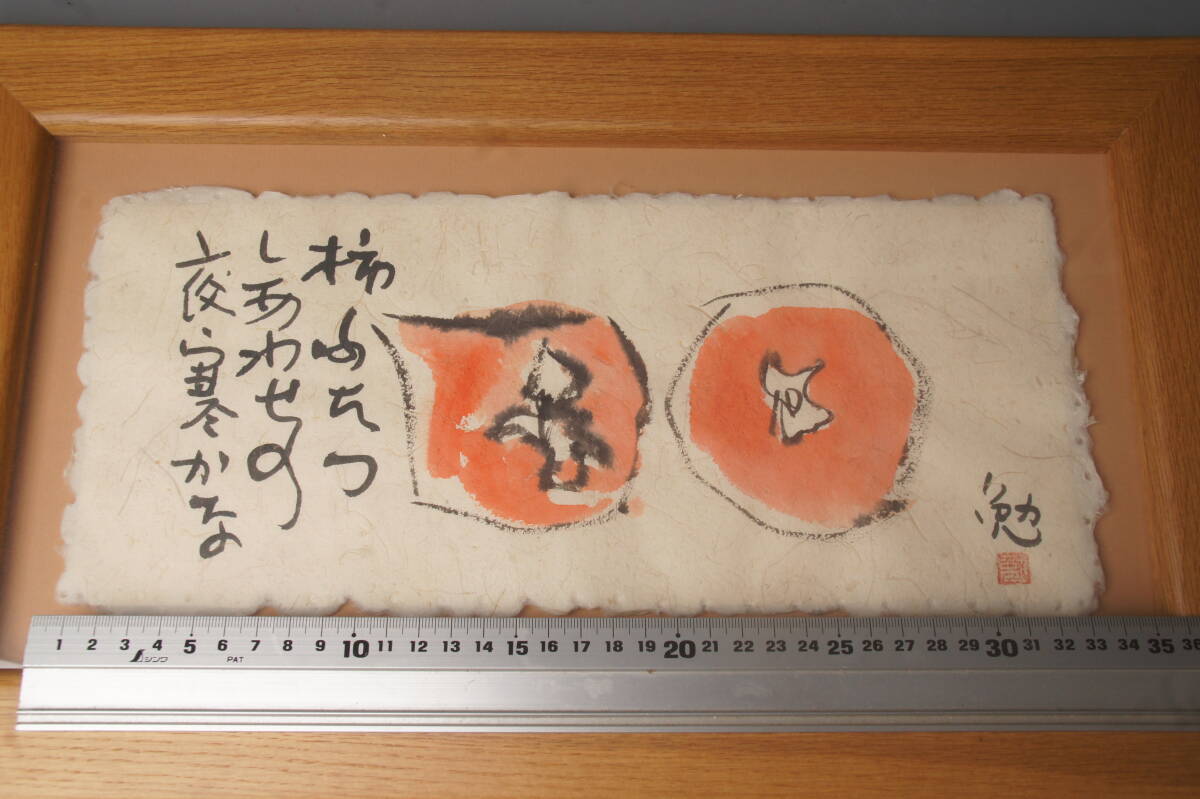 柿ふたつ
しあわせの
夜寒かな
勉
1 2 3 4 5 6 7 8 9 10 11 12 13 14 15 16 17 18 19 20 21 22 23 24 25 26 27 28 29 30 31 32 33 34 35 36
シンワ PAT